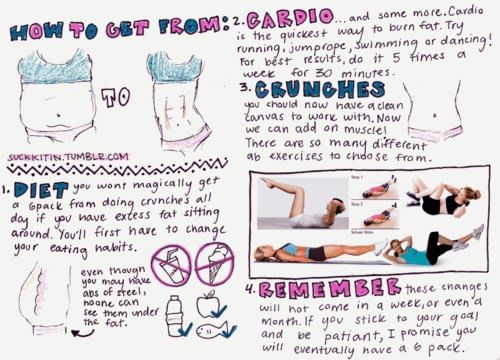 HOW TO GET FROM:
TO
SUCKKITIN.TUMBLR.COM
1. DIET you wont magically get
a 6pack from doing crunches all
day if you have excess fat sitting
around. You'll first have to change
your eating habits.
even though
you may have
abs of steel,
no one can
see them under
the fat.
2. CARDIO...and some more. Cardio
is the quickest way to burn fat. Try
running, jumprope, swimming or dancing!
For best results, do it 5 times a
week for 30 minutes.
3. CRUNCHES
you should now have a clean
canvas to work with. Now
we can add on muscle!
There are so many different
ab exercises to choose from.
Step 1
Step 2
Scissor Kicks
4. REMEMBER these changes
will not come in a week, or even a
month. If you stick to your goal
and be patiant, I promise you
will eventually have a 6 pack.